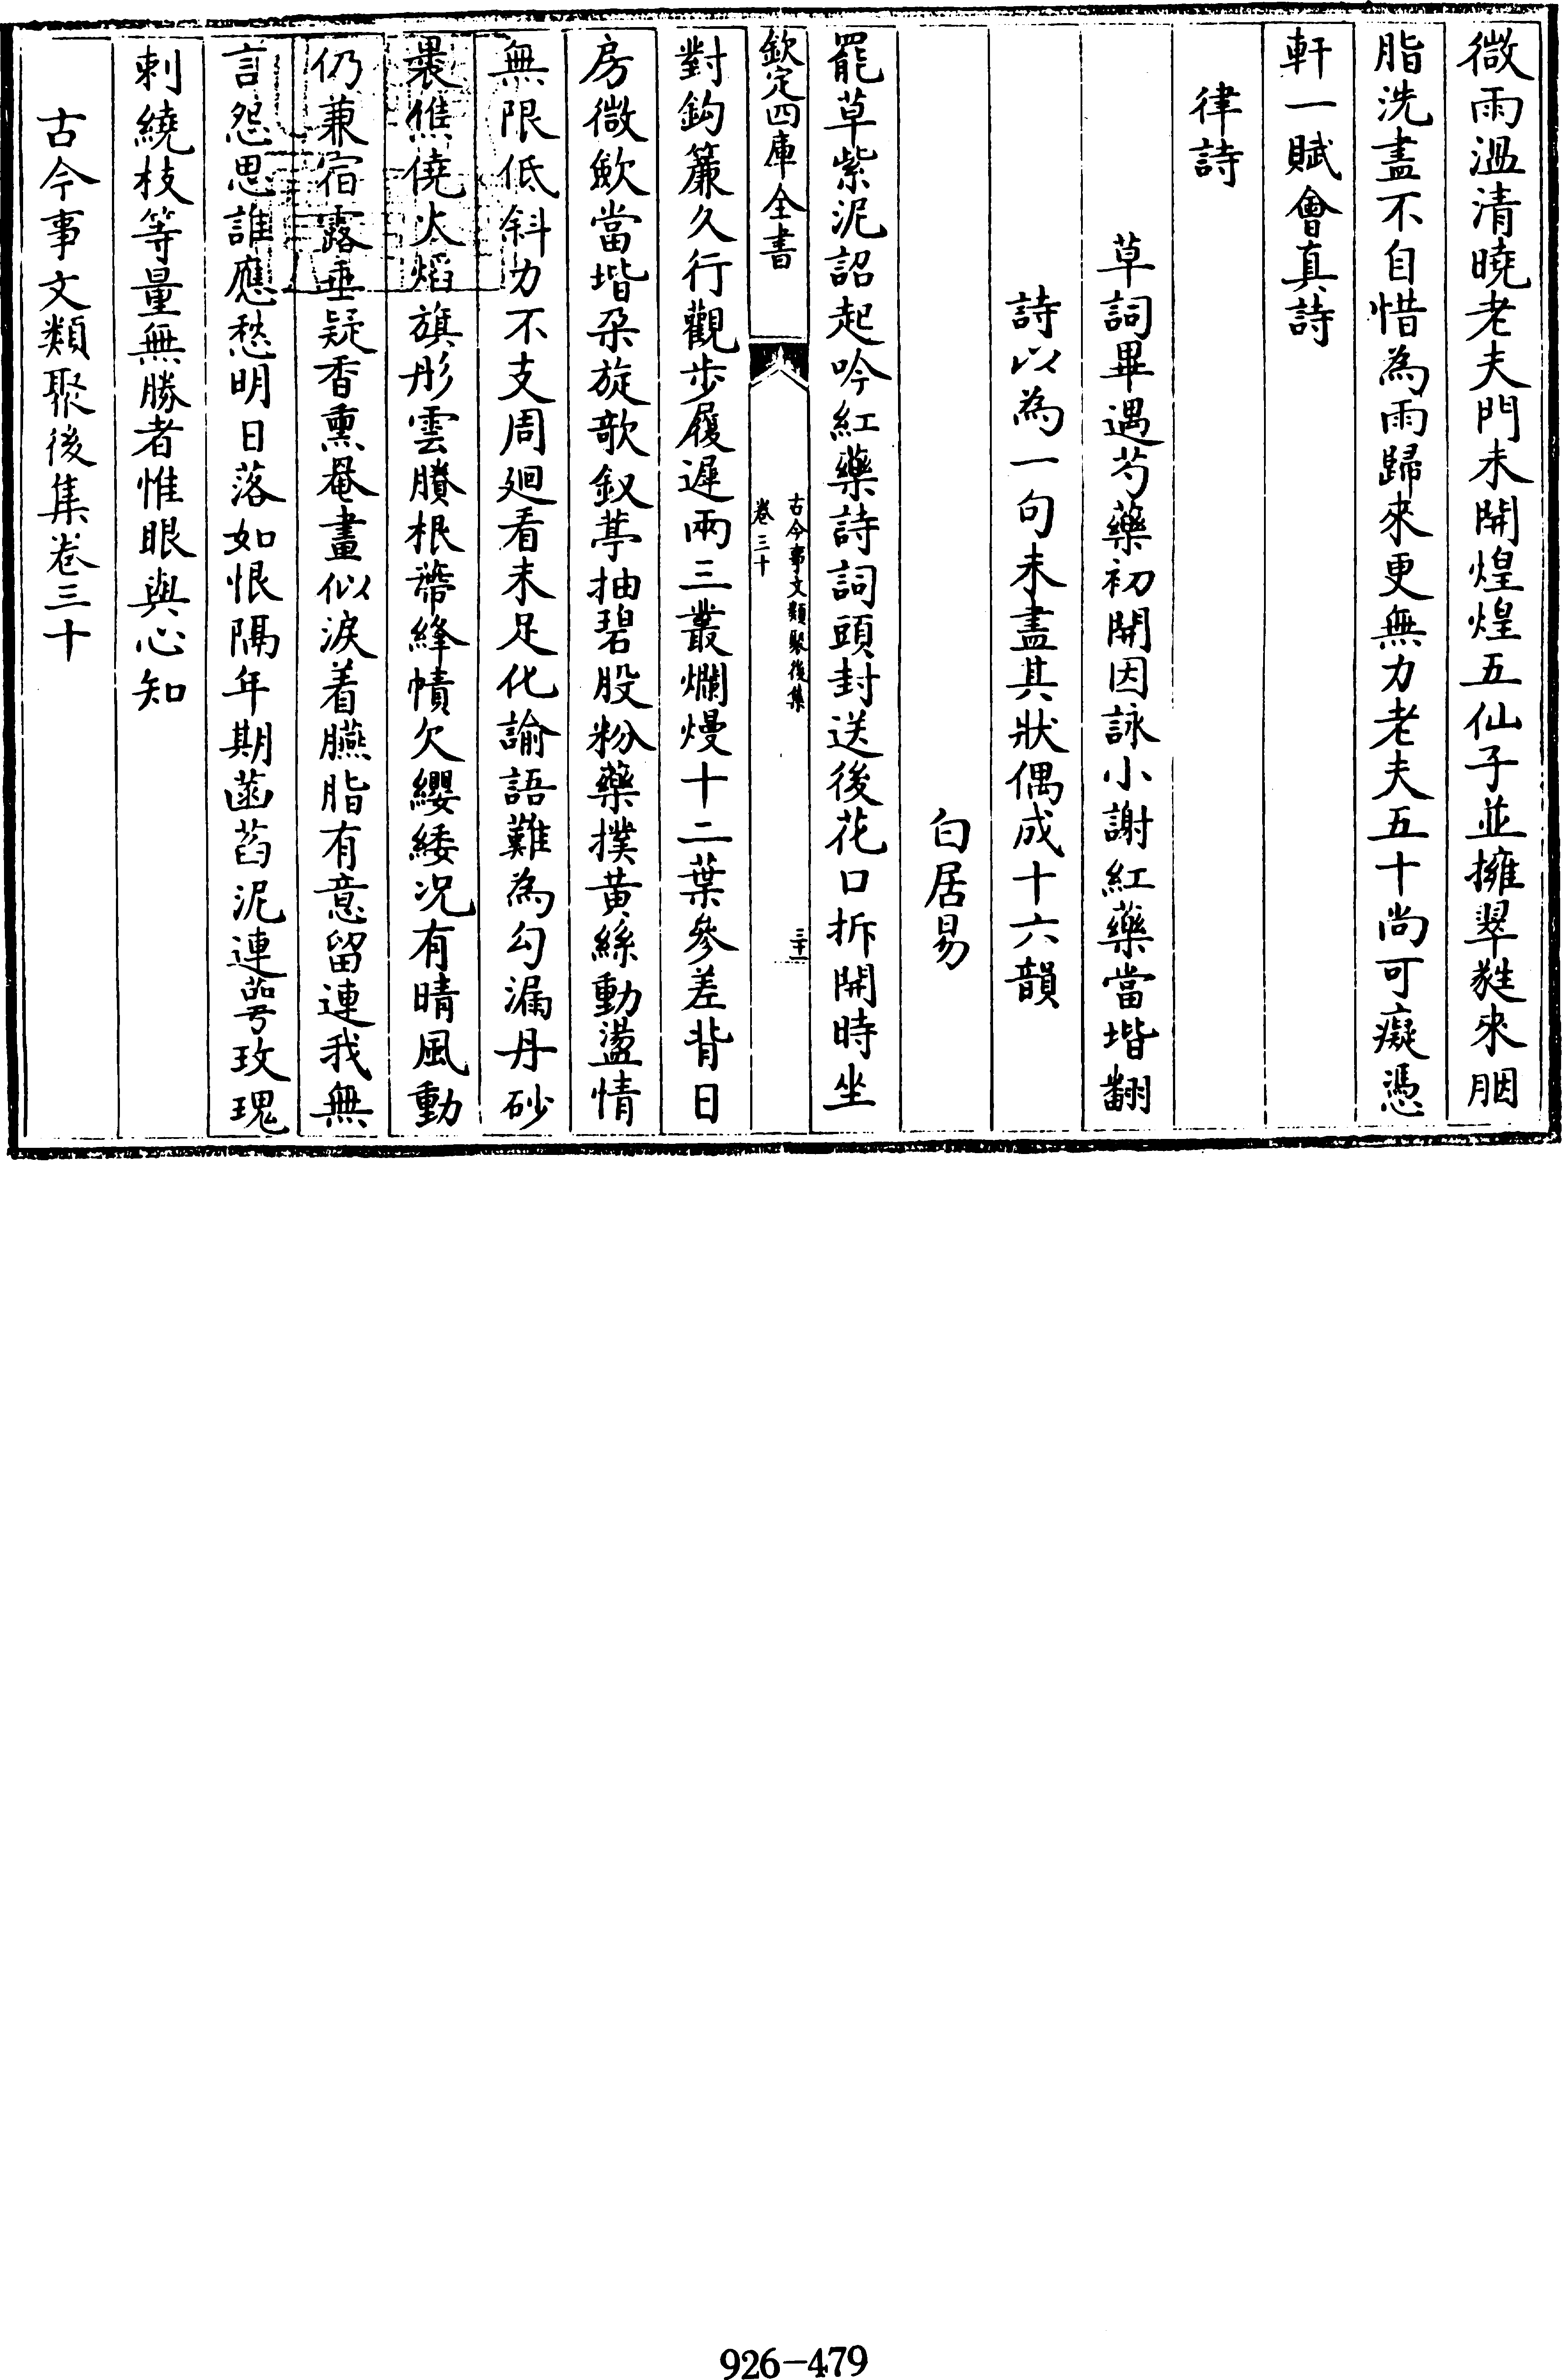 微雨溫清曉老夫門未開煌煌五仙子並擁翠麰來胭
脂洗盡不自惜為雨歸來更無力老夫五十尚可癡憑
軒一賦會真詩
律詩
草詞畢遇芍藥初開因詠小謝紅藥當堦翻
詩以為一句未盡其狀偶成十六韻
白居易
罷草紫泥詔起吟紅藥詩詞頭封送後花口拆開時坐
欽定四庫全書
古今事文類聚後集
卷三十
三十一
對鈎簾久行觀步履遲兩三叢爛熳十二葉參差背日
房微歛當堦朵旋欹釵葶抽碧股粉藥撲黄絲動盪情
無限低斜力不支周廻看未足化諭語難為勾漏丹砂
裹僬僥火熖旗彤雲賸根蔕絳幘欠纓緌况有晴風動
仍兼宿露垂疑香熏罨畫似淚着臙脂有意留連我無
言怨思誰應愁明日落如恨隔年期菡萏泥連萼玫瑰
刺繞枝等量無勝者惟眼與心知
古今事文類聚後集卷三十
926-479